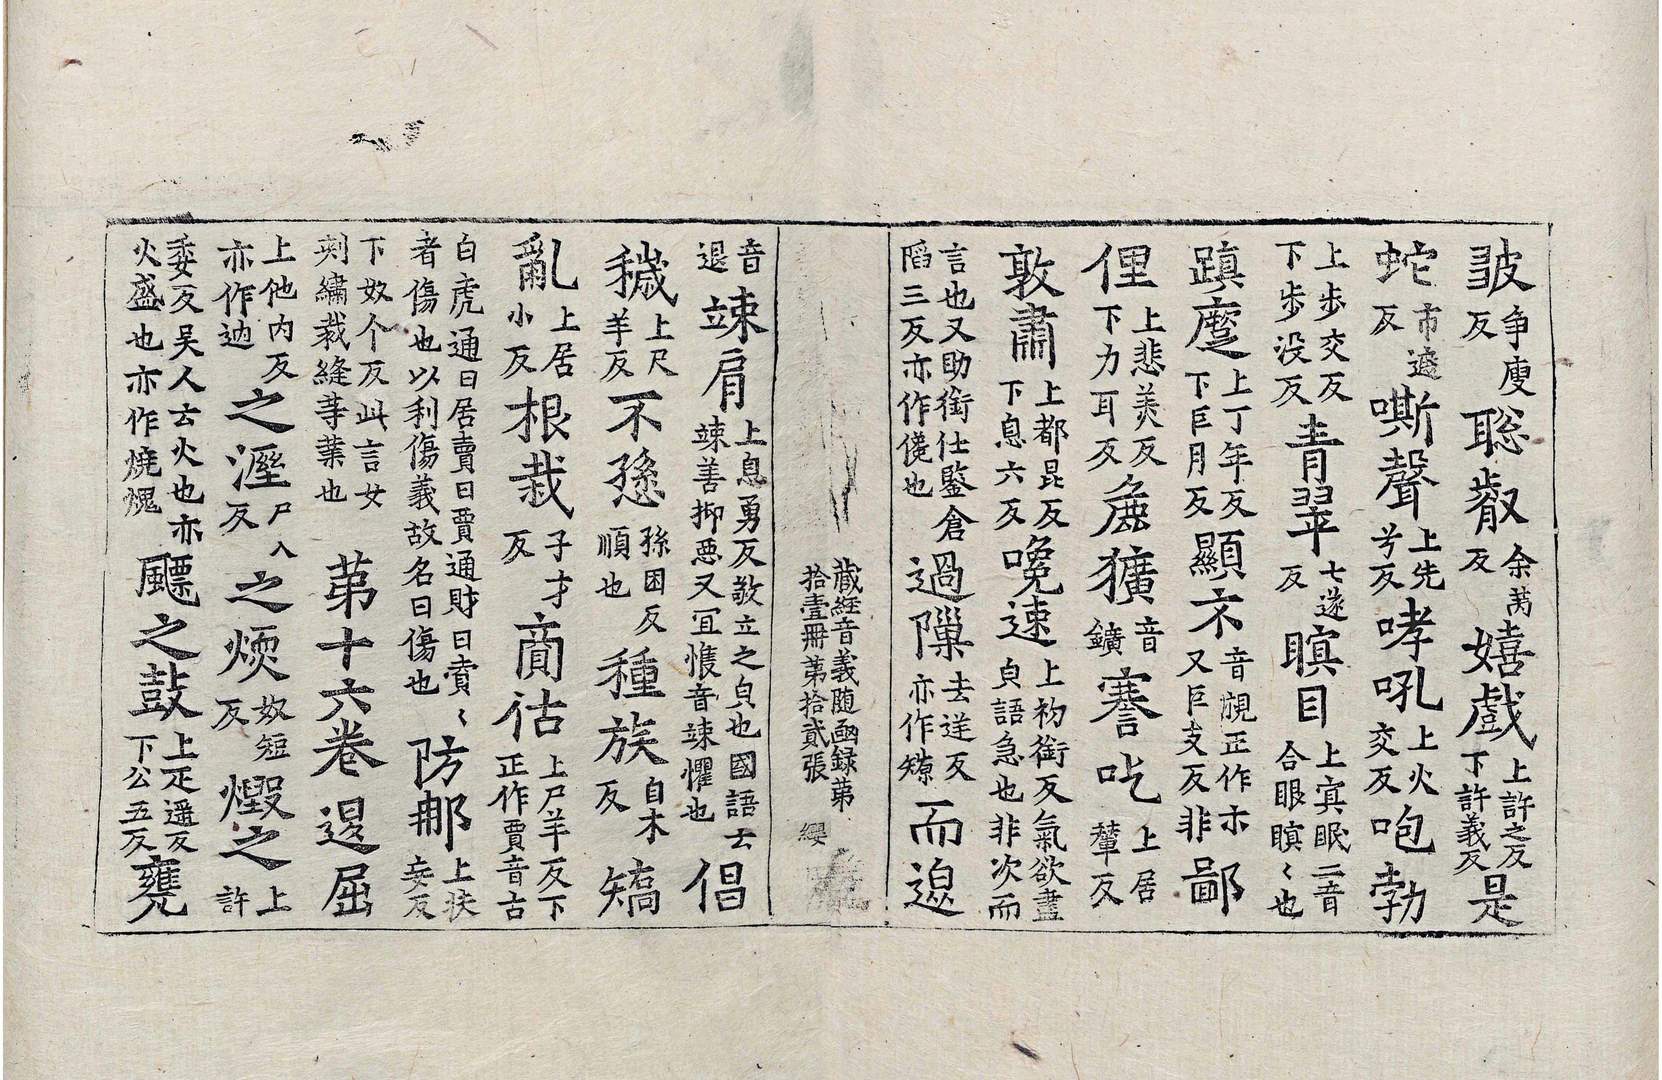 皺争廋反聡叡余芮反嬉戲上許之反下許義反是
蛇市遮反嘶聲上先兮反哮吼上火交反咆勃
上步交反下步没反青翠七遂反瞑目上㝠眠二音合眼瞑〻也
蹎蹷上丁年反下巨月反顯示音覗正作朩又巨支反非鄙
俚上悲美反下力耳反麁獷音鑛謇吃上居輦反
敦肅上都昆反下息六反㝹速上初銜反氣欲盡皃語急也非次而
言也又助銜仕鑒倉䧟三反亦作儳也過隟去逆反亦作𤐤而逈
藏經音義随函録第拾壹冊第拾貳張 纓
音退竦肩上息勇反敬立之皃也國語云竦善抑惡又冝愯音竦懼也倡
穢上尺羊反不愻孫困反順也種族自木反矯
亂上居小反根栽子才反商估上尸羊反下正作賈音古
白虎通曰居賣曰賈通財曰賣〻者傷也以利傷義故名曰傷也防那上扶妄反
下奴个反此言女刾繡裁縫䒭業也第十六卷退屈
上他内反亦作迺之溼尸入反之煗奴短反燬之上許
委反吴人云火也亦火盛也亦作燒㷄飃之鼓上疋遥反下公五反甕